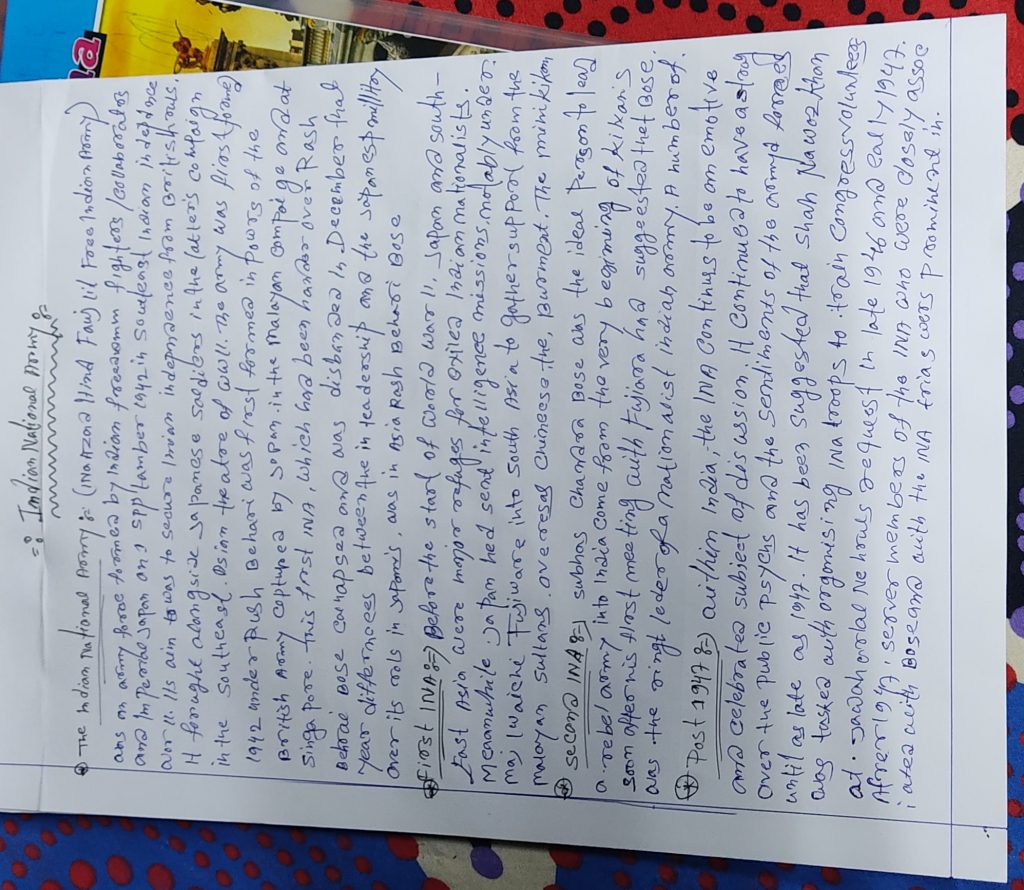 -: Indian National Army :-
* The Indian National Army :- (INA Azad Hind Fauj lil Free Indian Army)
was an army force formed by Indian freedomm fighters / Collaborators
and Imperial Japan on 1 spptamber 1942 in Southeast Indian indeDdnce
World war II. Its aim to was to secure Indian independence from Britishruls.
It forught alongside Japanes Saldiers in the latter's campaign
in the Southeast. Asian theatore of WWII. The army was first formed
1942 under Rush Behari was first formed in Powers of the
British Army captured by Japan. in the Malayan compaige and at
Singapore. This first INA, which had been handed over Rash
Behrai Bose callapsed and was disbanded in December that
Year differences between the in leadership and the Japanes military
over its rols in Japans. was in Asia Rash Behari Bose
* first INA :-) Before the start of World war 11, Japan and south-
East Asia were major refuges for exiled Indian nationalists.
Meanwhile Japan hed send intelligence missions, notably under
maj Iwaiche Fujiware into South Asia to gather support from the
malayan sultans. overesal Chineese the, Burment. The minikikan
* second INA :-) subhas Chandra Bose was the ideal Person to lead
a rebel army into India come from the very begining of kikan's
soon after his first meeting with Fujiara had suggested thet Bose.
was the ringt leder of a nationalist indian army. A number of.
* Post 1947 :-) Within India, the INA Continus to be an emotive
and celebrated subject of discussion It Continued to have a stray
over the Public Psychs and the sentiments of the armyd forced
until as late as 1947. It has been suggested that Shah Nawaz khan
was tasked with organising INA troops to train congress volunteers
at. Jawaharlal Nehrus request in late 1946 and early 1947.
After 1947, server members of the INA who were closely assoc
iated with Bose and with the INA trias wors prominent in.